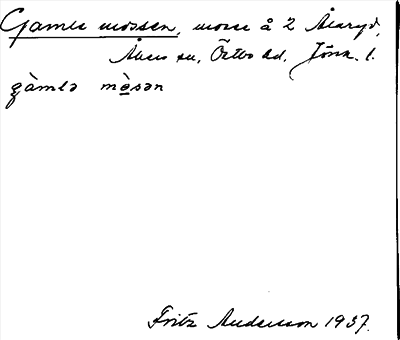 Gamle mossen, mosse å 2 Åkaryd,
Åkers sn, Östbo hd, Jönk. l.
gàmlə mòsən
Fritz Andersson 1937.